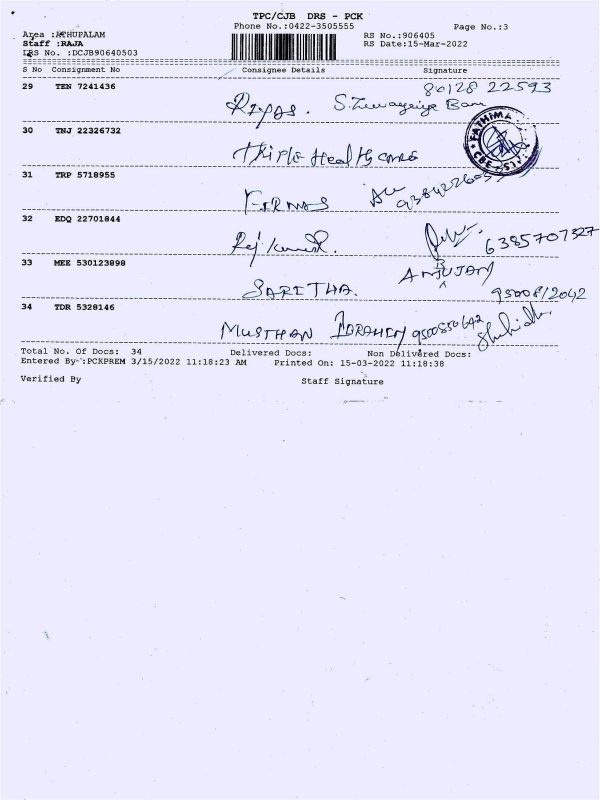 TPC/CJB DRS - PCK
Phone No.:0422-3505555 Page No.:3
Area :ATHUPALAM RS No.:906405
Staff :RAJA RS Date:15-Mar-2022
DRS No. :DCJB90640503
S No Consignment No Consignee Details Signature
80128 22593
29 TEN 7241436
Riyas.
30 TNJ 22326732
FATHIMA
Thiple Health care
31 TRP 5718955
FIRNAS
32 EDQ 22701844
Raj Kumar. 6385707327
33 MEE 530123898
ANBUJAM
SARITHA. 95008/2042
34 TDR 5328146
MUSTHAN IBRAHIM 9500850642
Total No. Of Docs: 34 Delivered Docs: Non Delivered Docs:
Entered By :PCKPREM 3/15/2022 11:18:23 AM Printed On: 15-03-2022 11:18:38
Verified By Staff Signature